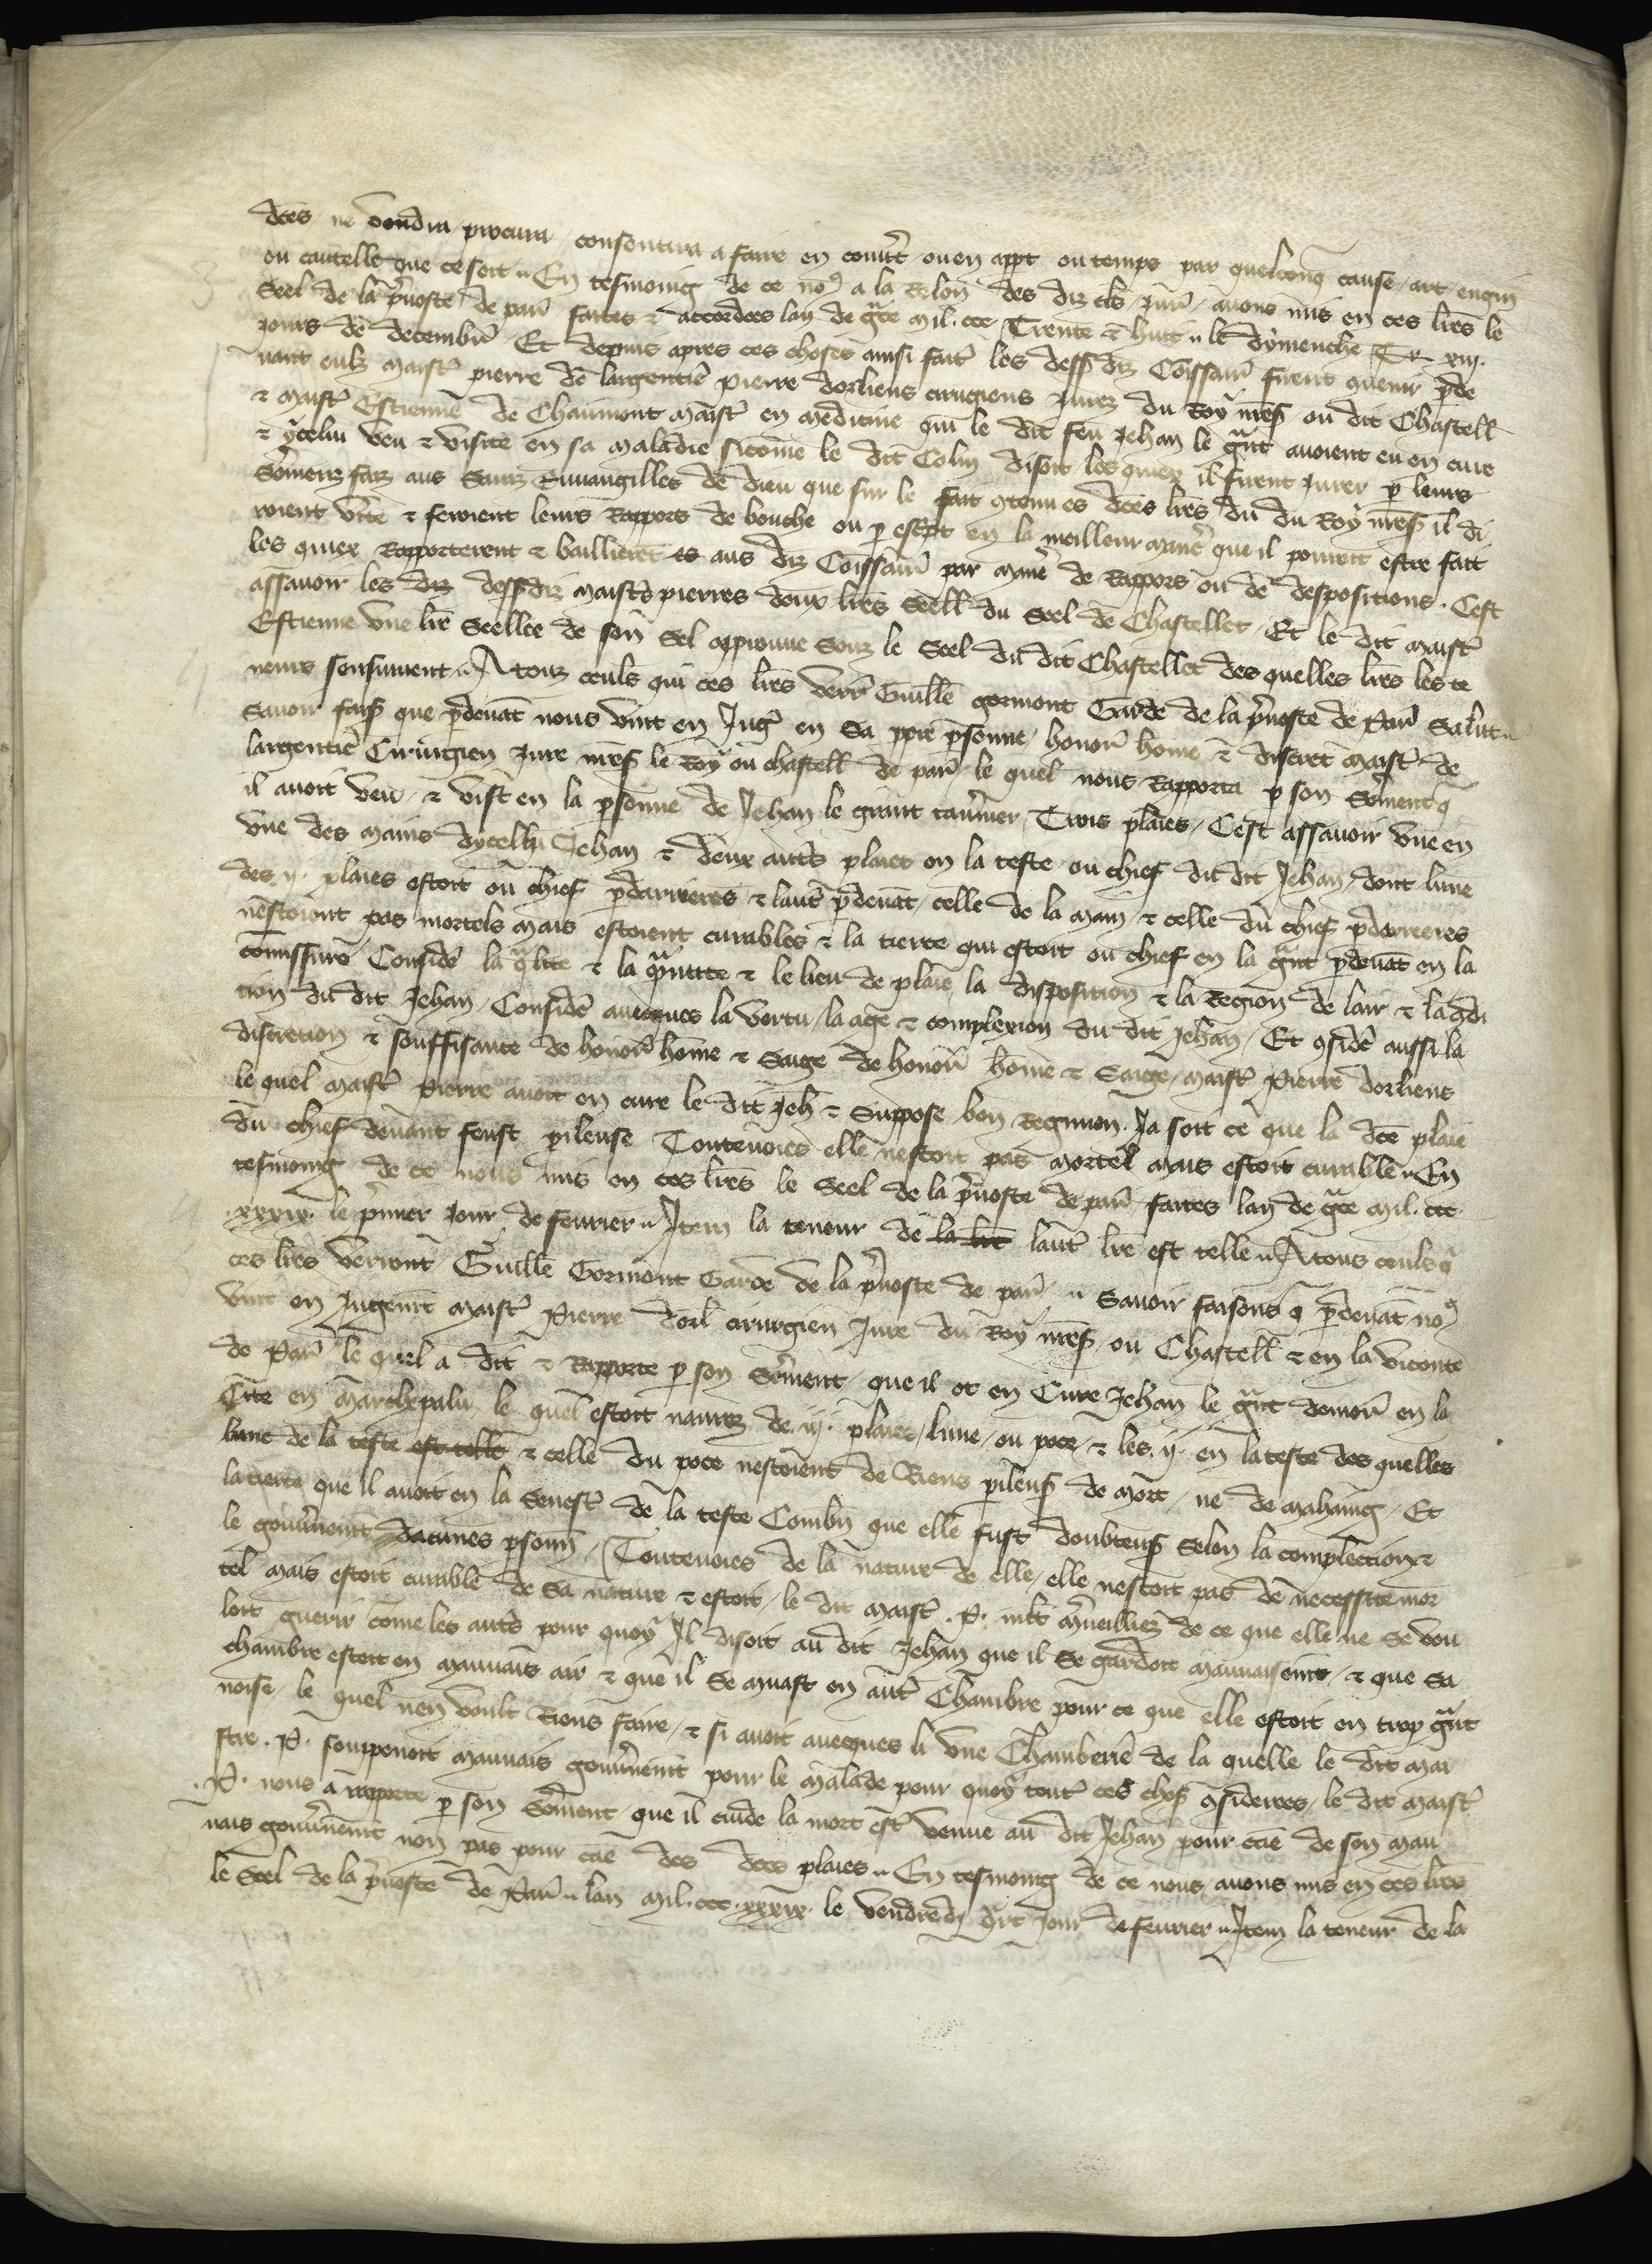 dc̄es ne voudra procurra consentira a faire en cont̄re ou en app̄t ou temps par quelconq̄ cause art engin
ou cautelle que ce soit En tesmoing de ce no9 a la Relon̄ des diz cl̄s jur̄ avons mis en ces lr̄es le
Seel de la p̄voste de par̄ faites & accordees lan de gr̄ce mil. ccc Trente & huit le dymenche xiij.
jours de decembr̄ Et depuis apres ces choses ainsi fait̄ les dess diz Com̄issair̄ firent venir p̄de
vant eulz maistr̄ pierre de largentier̄ pierre dorliens cirugiens jurez du Roy nr̄es ou dit Chastell̄
& maistr̄ Estienne de Chaumont maistr̄ en medicine qui le dit feu Jehan le gr̄nt avoient eu en cure
& ycelui veu & visite en sa maladie sicom̄e le dit Colin disoit les quiex il firent jurer p̄ leurs
Ser̄mens faiz aus Sainz Euuangilles de dieu que sur le fait 9tenu es dc̄es lr̄es du du Roy nr̄es il di
roient v̄ite & feroient leurs Rappors de bouche ou p̄ escript en la meilleur manie᷑ que il pourroit estre fait
les quiex Rapporterent & baillierent es aus diz Com̄issair̄ par manie᷑ de Rappors ou de despositions. Cest
assavoir les diz dessdiz maistr̄s pierres deux lr̄es Seell̄ du Seel de Chastellet Et le dit maistr̄
Estienne une lr̄e Seellee de son Sel approuve Souz le Seel du dit Chastellet des quelles lr̄es les te
neurs sensuivent A touz ceuls qui ces lr̄es verr̄ Guill̄e gormont Garde de la p̄voste de Par̄ Salut
Savoir fais̄ que p̄devāt nous vint en Juḡ en Sa pp̄re p̄sonne honor̄ home & discret maistr̄ de
largentier̄ Cirurgien jure nr̄es le Roy ou chastell̄ de par̄ le quel nous Rapporta p̄ son Ser̄ment q̄
il avoit veu & vist en la p̄sonne de Jehan le grant tav̄nier Trois plaies Cest assavoir une en
une des mains dycellui Jehan & deux autr̄s plaies en la teste ou chief du dit Jehan dont lune
des ij. plaies estoit ou chief p̄darrieres & lautr̄ p̄devāt celle de la main & celle du chief p̄derreres
nestoient pas mortels mais estoient curables & la tierce qui estoit ou chief en la gr̄nt p̄devāt en la
com̄issure Consider̄ la q̄lite & la q̄ntite & le lieu de plaie la disposition & la Region de lair & la 9di
tion du dit Jehan Consider̄ avecques la vertu la age & complexion du dit Jehan Et 9sider̄ aussi la
discretion & souffisance de honor̄ home & Saige de honor̄ home & Saige maistr̄ Pierre dorliens
le quel maistr̄ Pierre avoit en cure le dit Jeh̄ & suppose bon Regimen Ja soit ce que la dc̄e plaie
du chief devant feust p̄ileuse Toutevoies elle nestoit pas mortel̄ mais estoit curable En
tesmoing de ce nous mis en ces lr̄es le Seel de la p̄voste de par̄ faites lan de gr̄ce mil. ccc.
xxxix. le p̄mier jour de fevrier Item la teneur de la lr̄e lautr̄ lr̄e est telle A tous ceuls q̄
ces lr̄es verront Guill̄e Gormont Garde de la p̄voste de par̄ Savoir faisons q̄ p̄devāt no9
vint en Jugem̄t maistr̄ Pierre dorl̄ cirurgien Jure du Roy nr̄es ou Chastell̄ & en la viconte
de Par̄ le quel a dit & Rapporte p̄ son Ser̄ment que il ot en Cure Jehan le gr̄nt demor̄ en la
Cite en marchepalu le quel estoit navrez de iij. plaies lune ou poce & les ij. en la teste des quelles
lune de la teste est telle & celle du poce nestoient de Riens p̄ileus̄ de mort ne de mahaing Et
la tierce que il avoit en la Senestr̄ de la teste Combn̄ que elle fust doubteus̄ Selon la complection &
le gouv̄nem̄t daucunes p̄sonn̄ Toutevoies de la nature de elle elle nestoit pas de necessite mor
tel mais estoit curable de Sa nature & estoit le dit maistr̄ .P. ml̄t m̄veilliez de ce que elle ne Se vou
loit guerir com̄e les autr̄s pour quoy Il disoit au dit Jehan que il Se gardoit mauvaisem̄t & que Sa
chambre estoit en mauvais air & que il Se muast en autr̄ Chambre pour ce que elle estoit en trop gr̄nt
noise le quel nen voult Riens faire & si avoit avecques li une Chamberier̄e de la quelle le dit mai
stre .P. souppenoit mauvais gouv̄nem̄t pour le malade pour quoy tout̄ ces chos̄ 9siderees le dit maistr̄
.P. nous a rapporte p̄ son Ser̄ment que il cuide la mort estr̄ venue au dit Jehan pour cāe de son mau
vais gouv̄nem̄t non pas pour cāe des dc̄es plaies En tesmoing de ce nous avons mis en ces lr̄es
le Seel de la p̄voste de Par̄ lan mil. ccc. xxxix. le vendredi q̄rt jour de fevrier Item la teneur de la